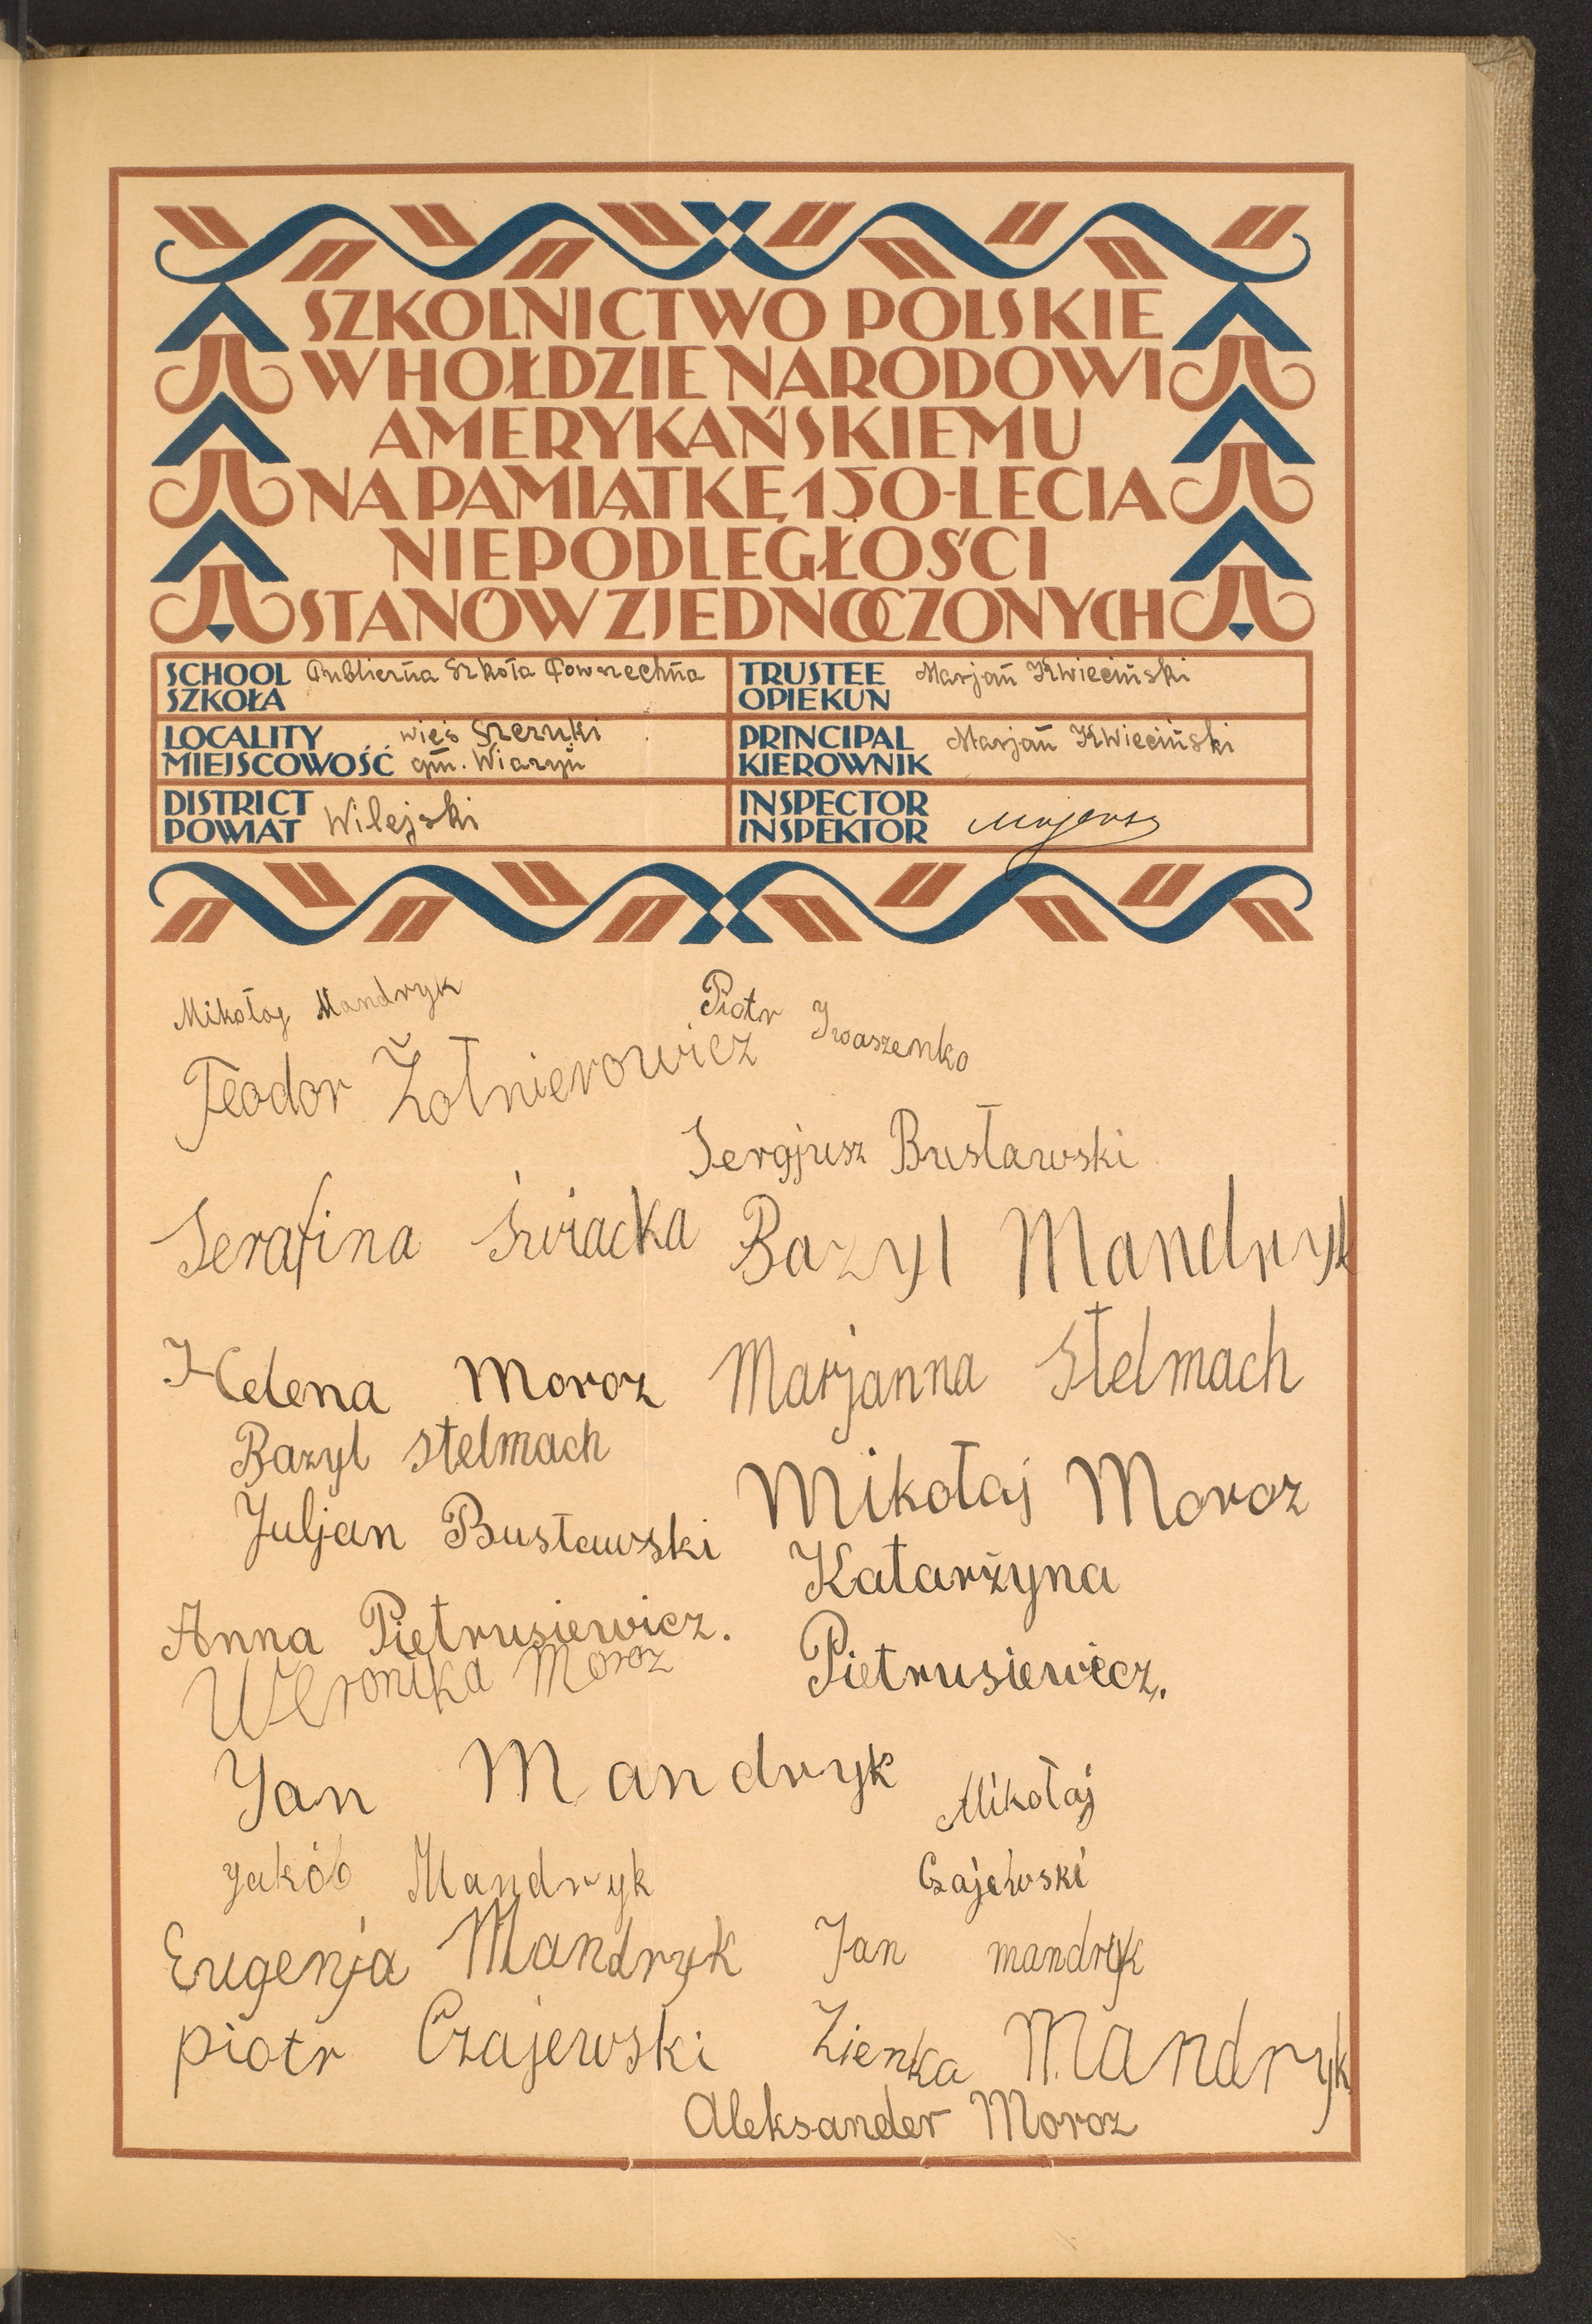 SZKOLNICTWO POLSKIE
W HOŁDZIE NARODOWI
AMERYKAŃSKIEMU
NA PAMIĄTKĘ 150-LECIA
NIEPODLEGŁOŚCI
STANÓW ZJEDNOCZONYCH
SCHOOL
SZKOŁA
Publiczna Szkoła Powszechna
TRUSTEE
OPIEKUN
Marjan Kwieciński
LOCALITY
MIEJSCOWOŚĆ
wieś Szczuki
gm. Wiazyń
PRINCIPAL
KIEROWNIK
Marjan Kwieciński
DISTRICT
POWIAT
Wilejski
INSPECTOR
INSPEKTOR
Mikołaj Mandryk
Piotr Iwaszenko
Teodor Żołnierowicz
Sergjusz Busławski
Serafina Świacka
Bazyl Mandryk
Helena Moroz
Marjanna Stelmach
Bazyl Stelmach
Mikołaj Moroz
Juljan Busławski
Katarżyna
Pietrusiewicz.
Anna Pietrusiewicz.
Weronika Moroz
Jan Mandryk
Mikołaj
Czajewski
Jakób Mandryk
Eugenja Mandryk
Jan mandryk
Piotr Czajewski
Zienka Mandryk
Aleksander Moroz